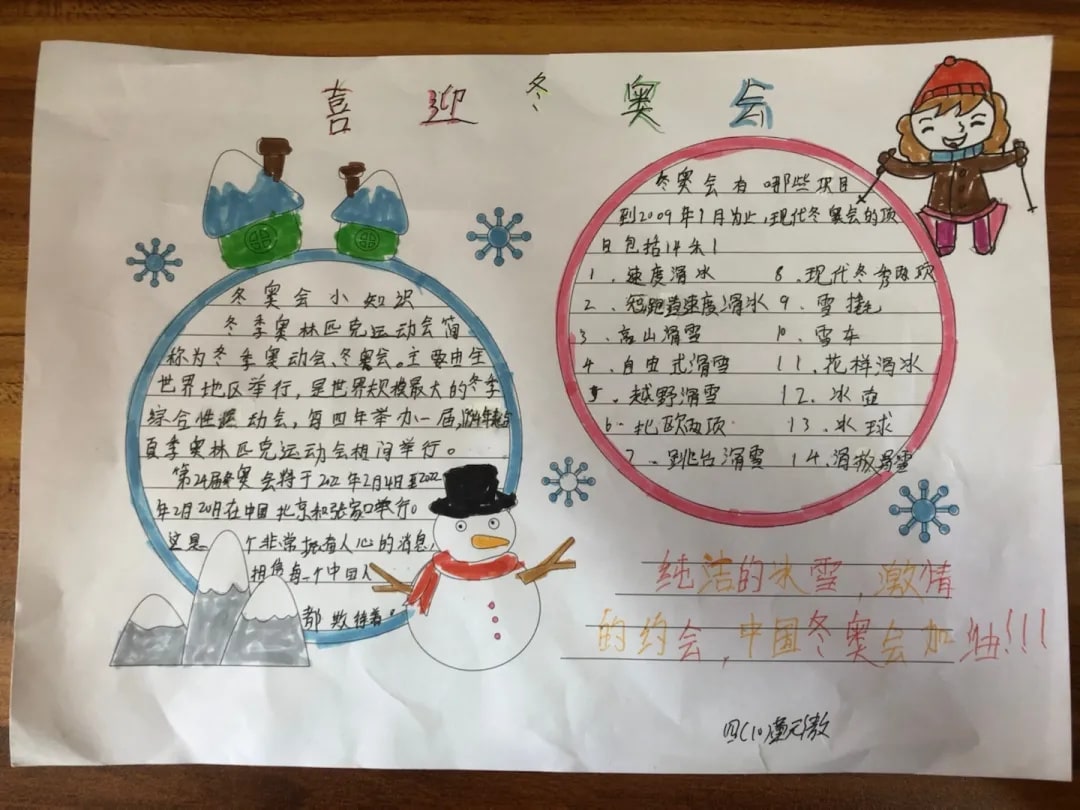 喜迎冬奥会
冬奥会小知识
冬季奥林匹克运动会简
称为冬季奥动会、冬奥会。主要由全
世界地区举行，是世界规模最大的冬季
综合性运动会，每四年举办一届，1994年起与
夏季奥林匹克运动会相间举行。
第24届冬奥会将于2022年2月4日至2022
年2月20日在中国北京和张家口举行。
这是一个非常振奋人心的消息，
相信每一个中国人
都期待着。
冬奥会有哪些项目
到2009年1月为止，现代冬奥会的项
目包括14条1
1、速度滑冰 8、现代冬季两项
2、短跑道速度滑冰 9、雪橇
3、高山滑雪 10、雪车
4、自由式滑雪 11、花样滑冰
5、越野滑雪 12、冰壶
6、北欧两项 13、冰球
7、跳台滑雪 14、滑板滑雪
纯洁的冰雪，激情
的约会，中国冬奥会加油！！！
四(10)